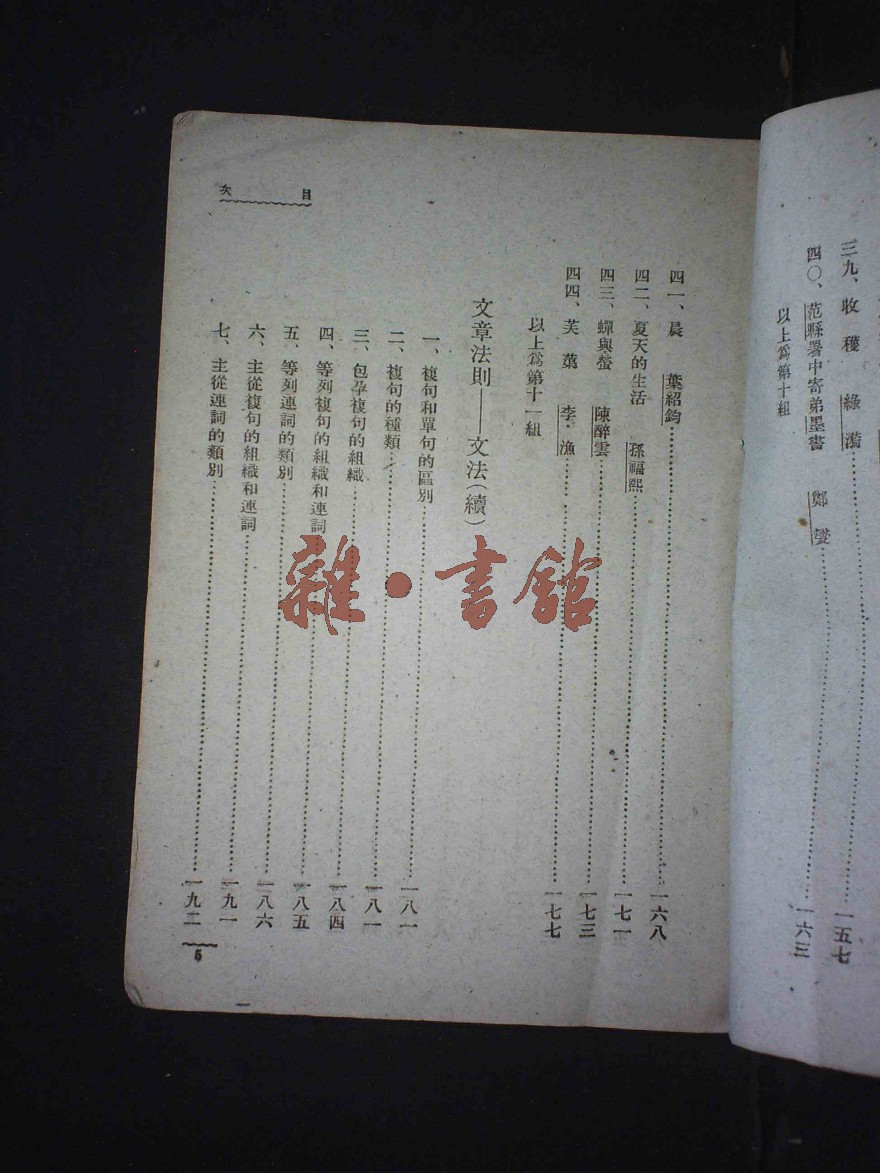 三九、收穫 綠漪……一五七
四〇、范縣署中寄弟墨書 鄭燮……一六三
以上爲第十組
目次
四一、晨 葉紹鈞……一六八
四二、夏天的生活 孫福熙……一七一
四三、蟬與螢 陳醉雲……一七三
四四、芙蕖 李漁……一七七
以上爲第十一組
文章法則——文法(續)
一、複句和單句的區別……一八一
二、複句的種類……一八一
三、包孕複句的組織……一八一
四、等列複句的組織和連詞……一八四
五、等列連詞的類別……一八五
六、主從複句的組織和連詞……一八六
七、主從連詞的類別……一九一
一九二
5
雜·書館